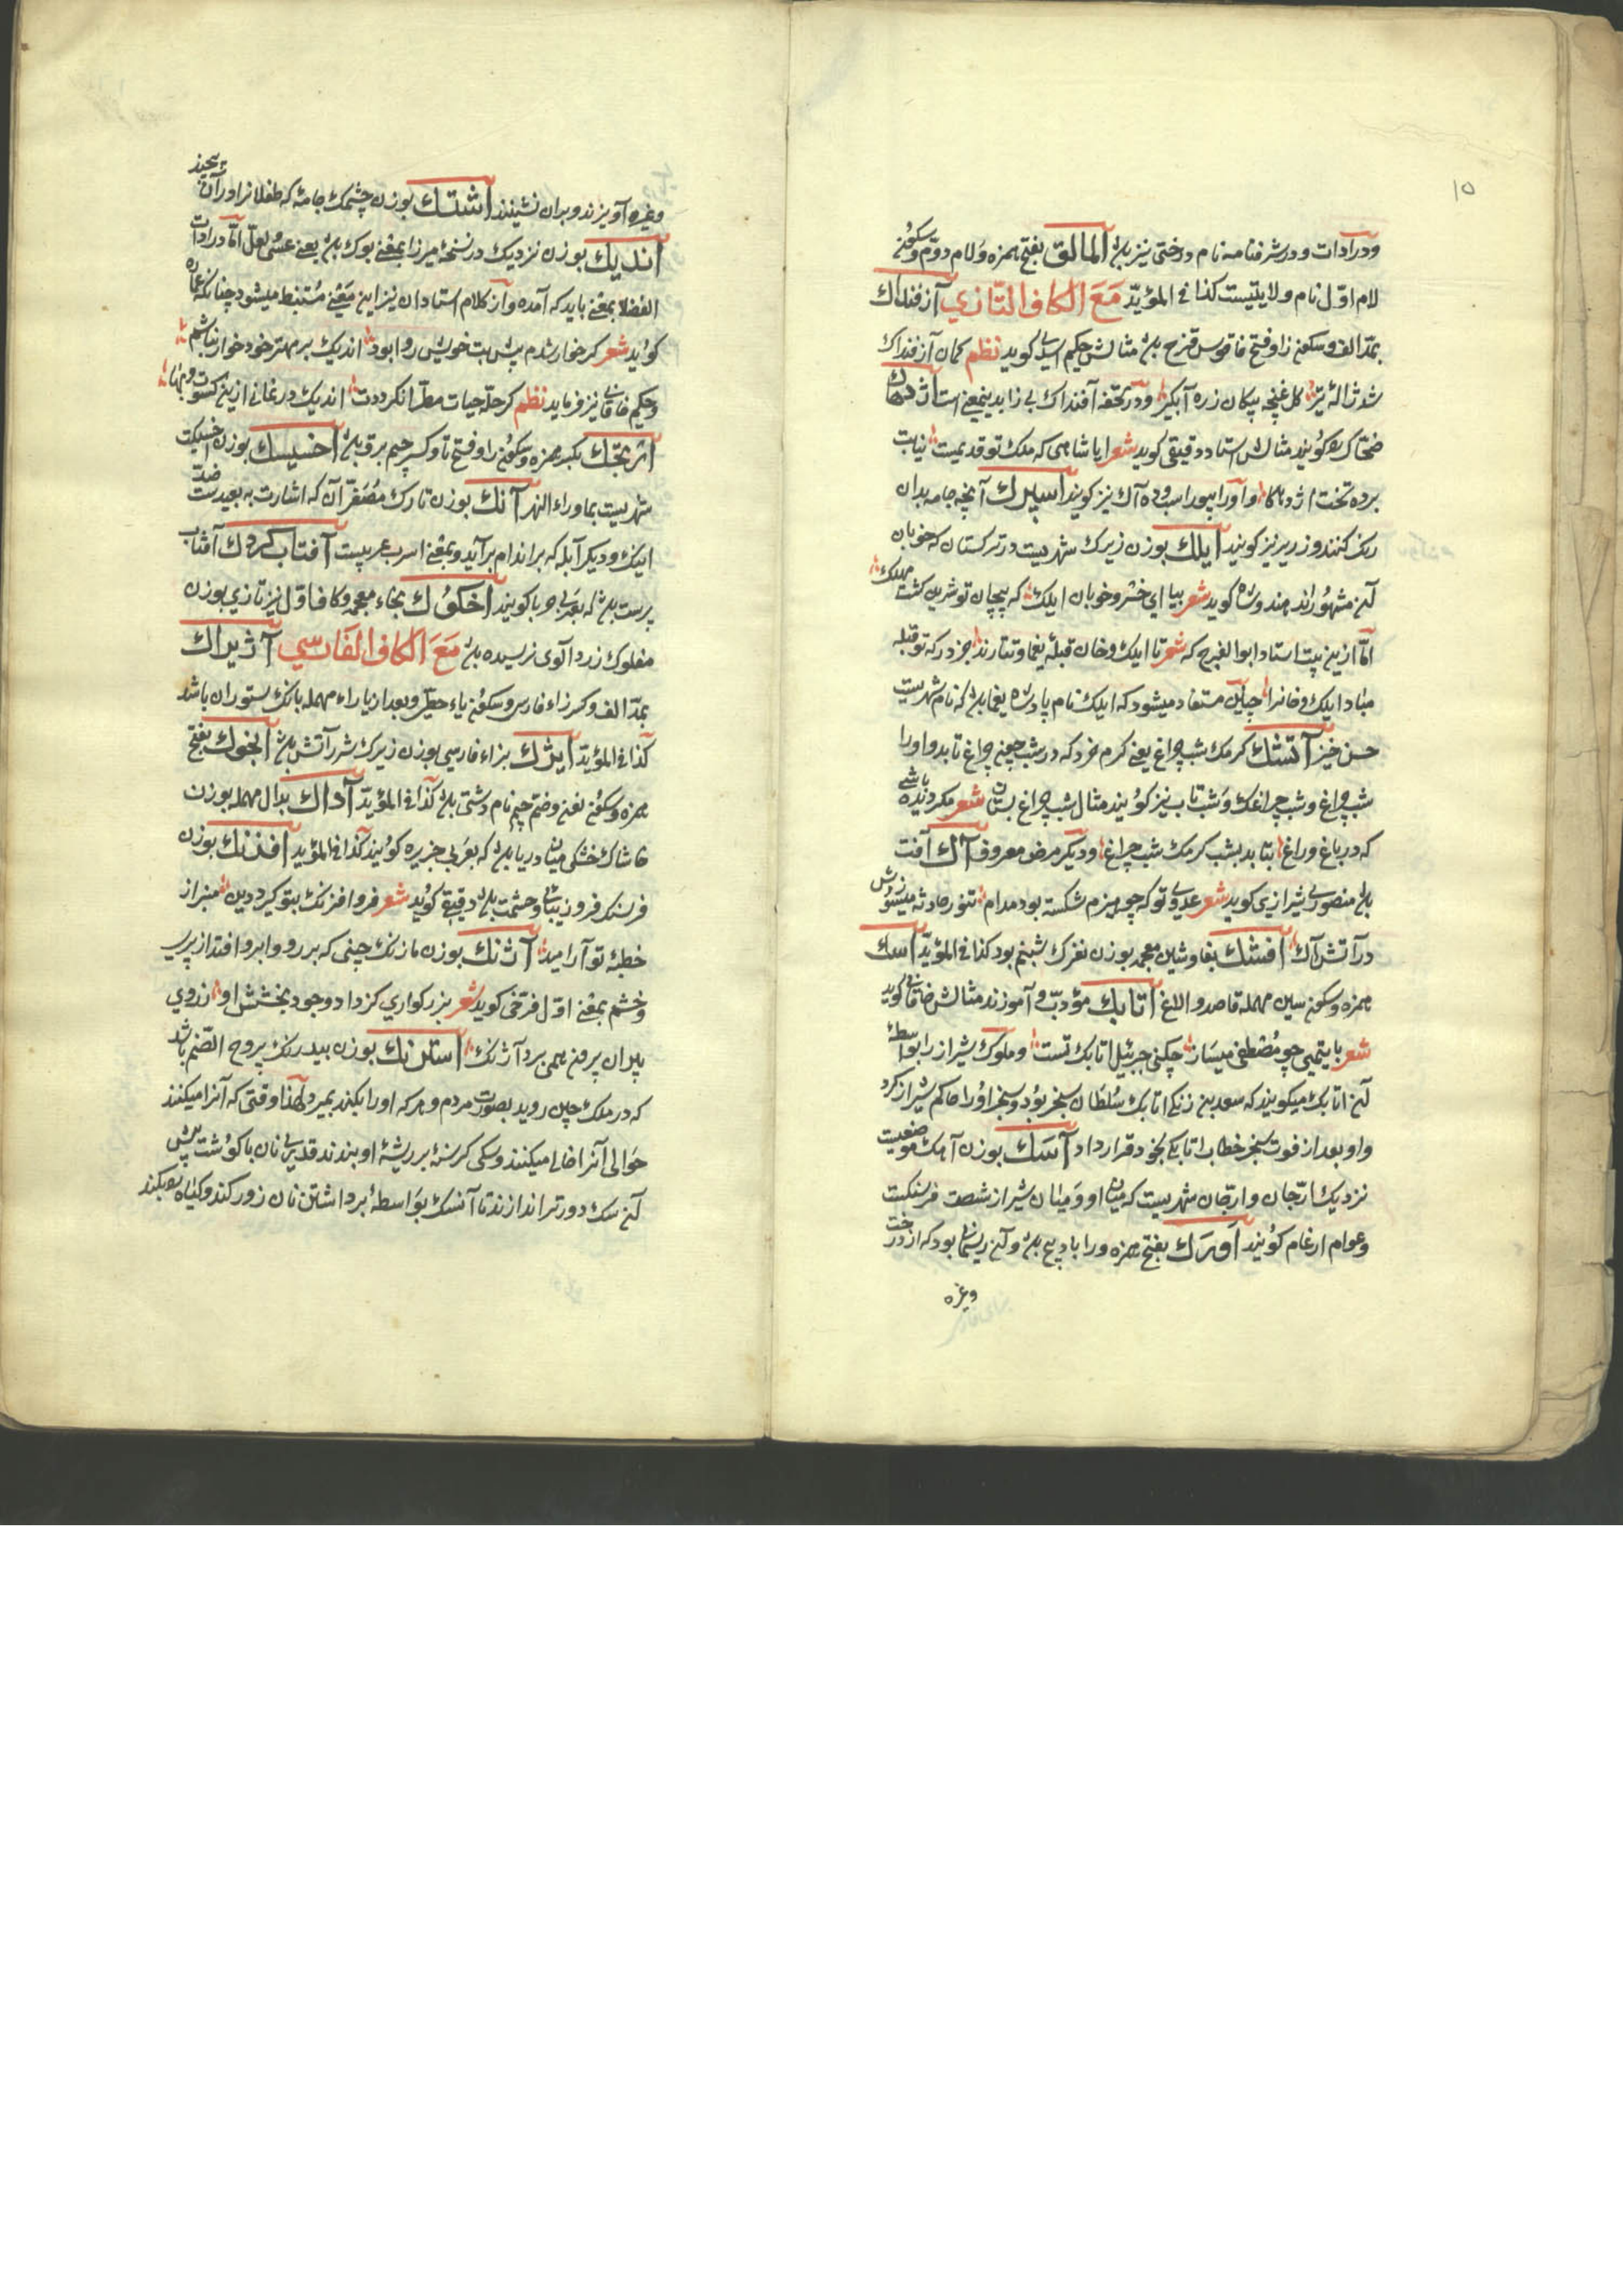 ۱۵
ودر آدات ودر شرفنامه نام درختی نیز باشد المالق بفتح همزه ولام دوم وسکون
لام اول نام ولایتیست کذا فی المؤید مَعَ الکاف التازي آزفنداك
بمد الف وسکون زا وفتح فا قوس قزح باشد مثالش حکیم اسدی کوید نظم کمان آزفنداك
شد ژاله تیر کل غنچه پیکان زره آبکیر ودر تحفه آفنداك بی زا بدینمعنی است اژدهاك
ضحاك را کویند مثالش استاد دقیقی کوید شعر ایا شاهی که ملك تو قدیمست نیایت
برده تخت از اژدهاکا واورا بیوراسب وده آك نیز کویند اسپرك آنچه جامه بدان
رنك کنند وزریر نیز کویند ایلك بوزن زیرك شهریست در ترکستان که خوبان
آن مشهور اند هندوشاه کوید شعر بیا ای خسرو خوبان ایلك که پیچان تو شیرین کشت مهلك
اما ازین بیت استاد ابوالفرج که شعر تا ایلك وخان قبله یغما وتتارند جز درکه تو قبله
مباد ایلك وخانرا چنین مستفاد میشود که ایلك نام پادشاه یغما باشد که نام شهریست
حسن خیز آتشك کرمك شب چراغ یعنی کرم خرد که در شب چون چراغ تابد واورا
شب چراغ وشب چراغك وشب تاب نیز کویند مثال شب چراغ بستان شعر مکر دیده باشی
که در باغ وراغ بتابد بشب کرمك شب چراغ ودیکر مرض معروف آك آفت
باشد منصور شیرازی کوید شعر عدوی تو که چو هیزم شکسته بود مدام تنور حادثه میسوزش
در آتش آك افشك بفا وشین معجمه بوزن نغزك شبنم بود کذا فی المؤید اسك
بهمزه وسکون سین مهمله قاصد والاغ اتابك مؤدب وآموزنده مثالش خاقانی کوید
شعر با یتیمی چو مصطفی میساز چکنی جبرئیل اتابك تست وملوك شیراز را بواسطه
آن اتابك میکویند که سعد بن زنکی اتابك سلطان سنجر بود وسنجر اورا حاکم شیراز کرد
واو بعد از فوت سنجر خطاب اتابکی بخود قرار داد آسك بوزن آهك موضعیست
نزدیك ارجان وارجان شهریست که میان او ومیان شیراز شصت فرسنکست
وعوام ارغام کویند اورك بفتح همزه ورا باد پیچ باشد وآن ریسمانی بود که از درخت
وغیره
وغیره آویزند وبران نشینند اشتك بوزن چشمك جامه که طفلانرا در آن پیچند
اندیك بوزن نزدیك در نسخه میرزا بمعنی بوك باشد یعنی عسی ولعل اما در ادات
الفضلا بمعنی باید که آمده واز کلام استادان نیز این معنی مستنبط میشود چنانکه عماره
کوید شعر کر خوار شدم پیش بت خویش روا بود اندیك بر مهتر خود خوار نباشم
وحکیم خاقانی نیز فرماید نظم کر حله حیات مطرا نکرددت اندیك در نمانی ازین کسوت
اثر بجك بکسر همزه وسکون را وفتح تا وکسر جیم برق باشد اخسیسك بوزن اخسیکت
شهریست بماوراء النهر آنك بوزن تارك مصغر آن که اشارت به بعیدست ضد
اینك ودیکر آبله که بر اندام برآید وبمعنی اسرب عربیست آفتاب کردك آفتاب
پرست باشد که بعربی حربا کویند اخکوك بخاء معجمه وکاف اول نیز تازی بوزن
مفلوك زردآلوی نرسیده باشد مَعَ الکاف الفارسي آژیراك
بمد الف وکسر زاء فارسی وسکون یاء حطی وبعد از یا راء مهمله بانك ستوران باشد
کذا فی المؤید ایژك بزاء فارسی بوزن زیرك شرر آتش باشد انجوك بفتح
همزه وسکون نون وضم جیم نام دشتی باشد کذا فی المؤید آداك بدال مهمله بوزن
خاشاك خشکی میان دریا باشد که بعربی جزیره کویند کذا فی المؤید افرنك بوزن
فرسنك فر وزیبائی وحشمت باشد دقیقی کوید شعر فر وافرنك بتو کیرد دین منبر از
خطبه تو آراید آژنك بوزن مازنك چینی که بر رو وابرو افتد از پیری
وخشم بمعنی اول فرخی کوید شعر بزرکواری کز داد وجود بخشش او ز روی
پیران بیرون همی برد آژنك استرنك بوزن بیدرنك یبروح الصنم باشد
که در ملك چین روید بصورت مردم وهر که اورا بکند بمیرد ولهذا وقتی که آنرا میکنند
حوالی آنرا خالی میکنند وسکی کرسنه بر ریشه او بندند قدری نان با کوشت پیش
آن سك دورتر اندازند تا آن سك بواسطه برداشتن نان زور کند وکیاه را بکند